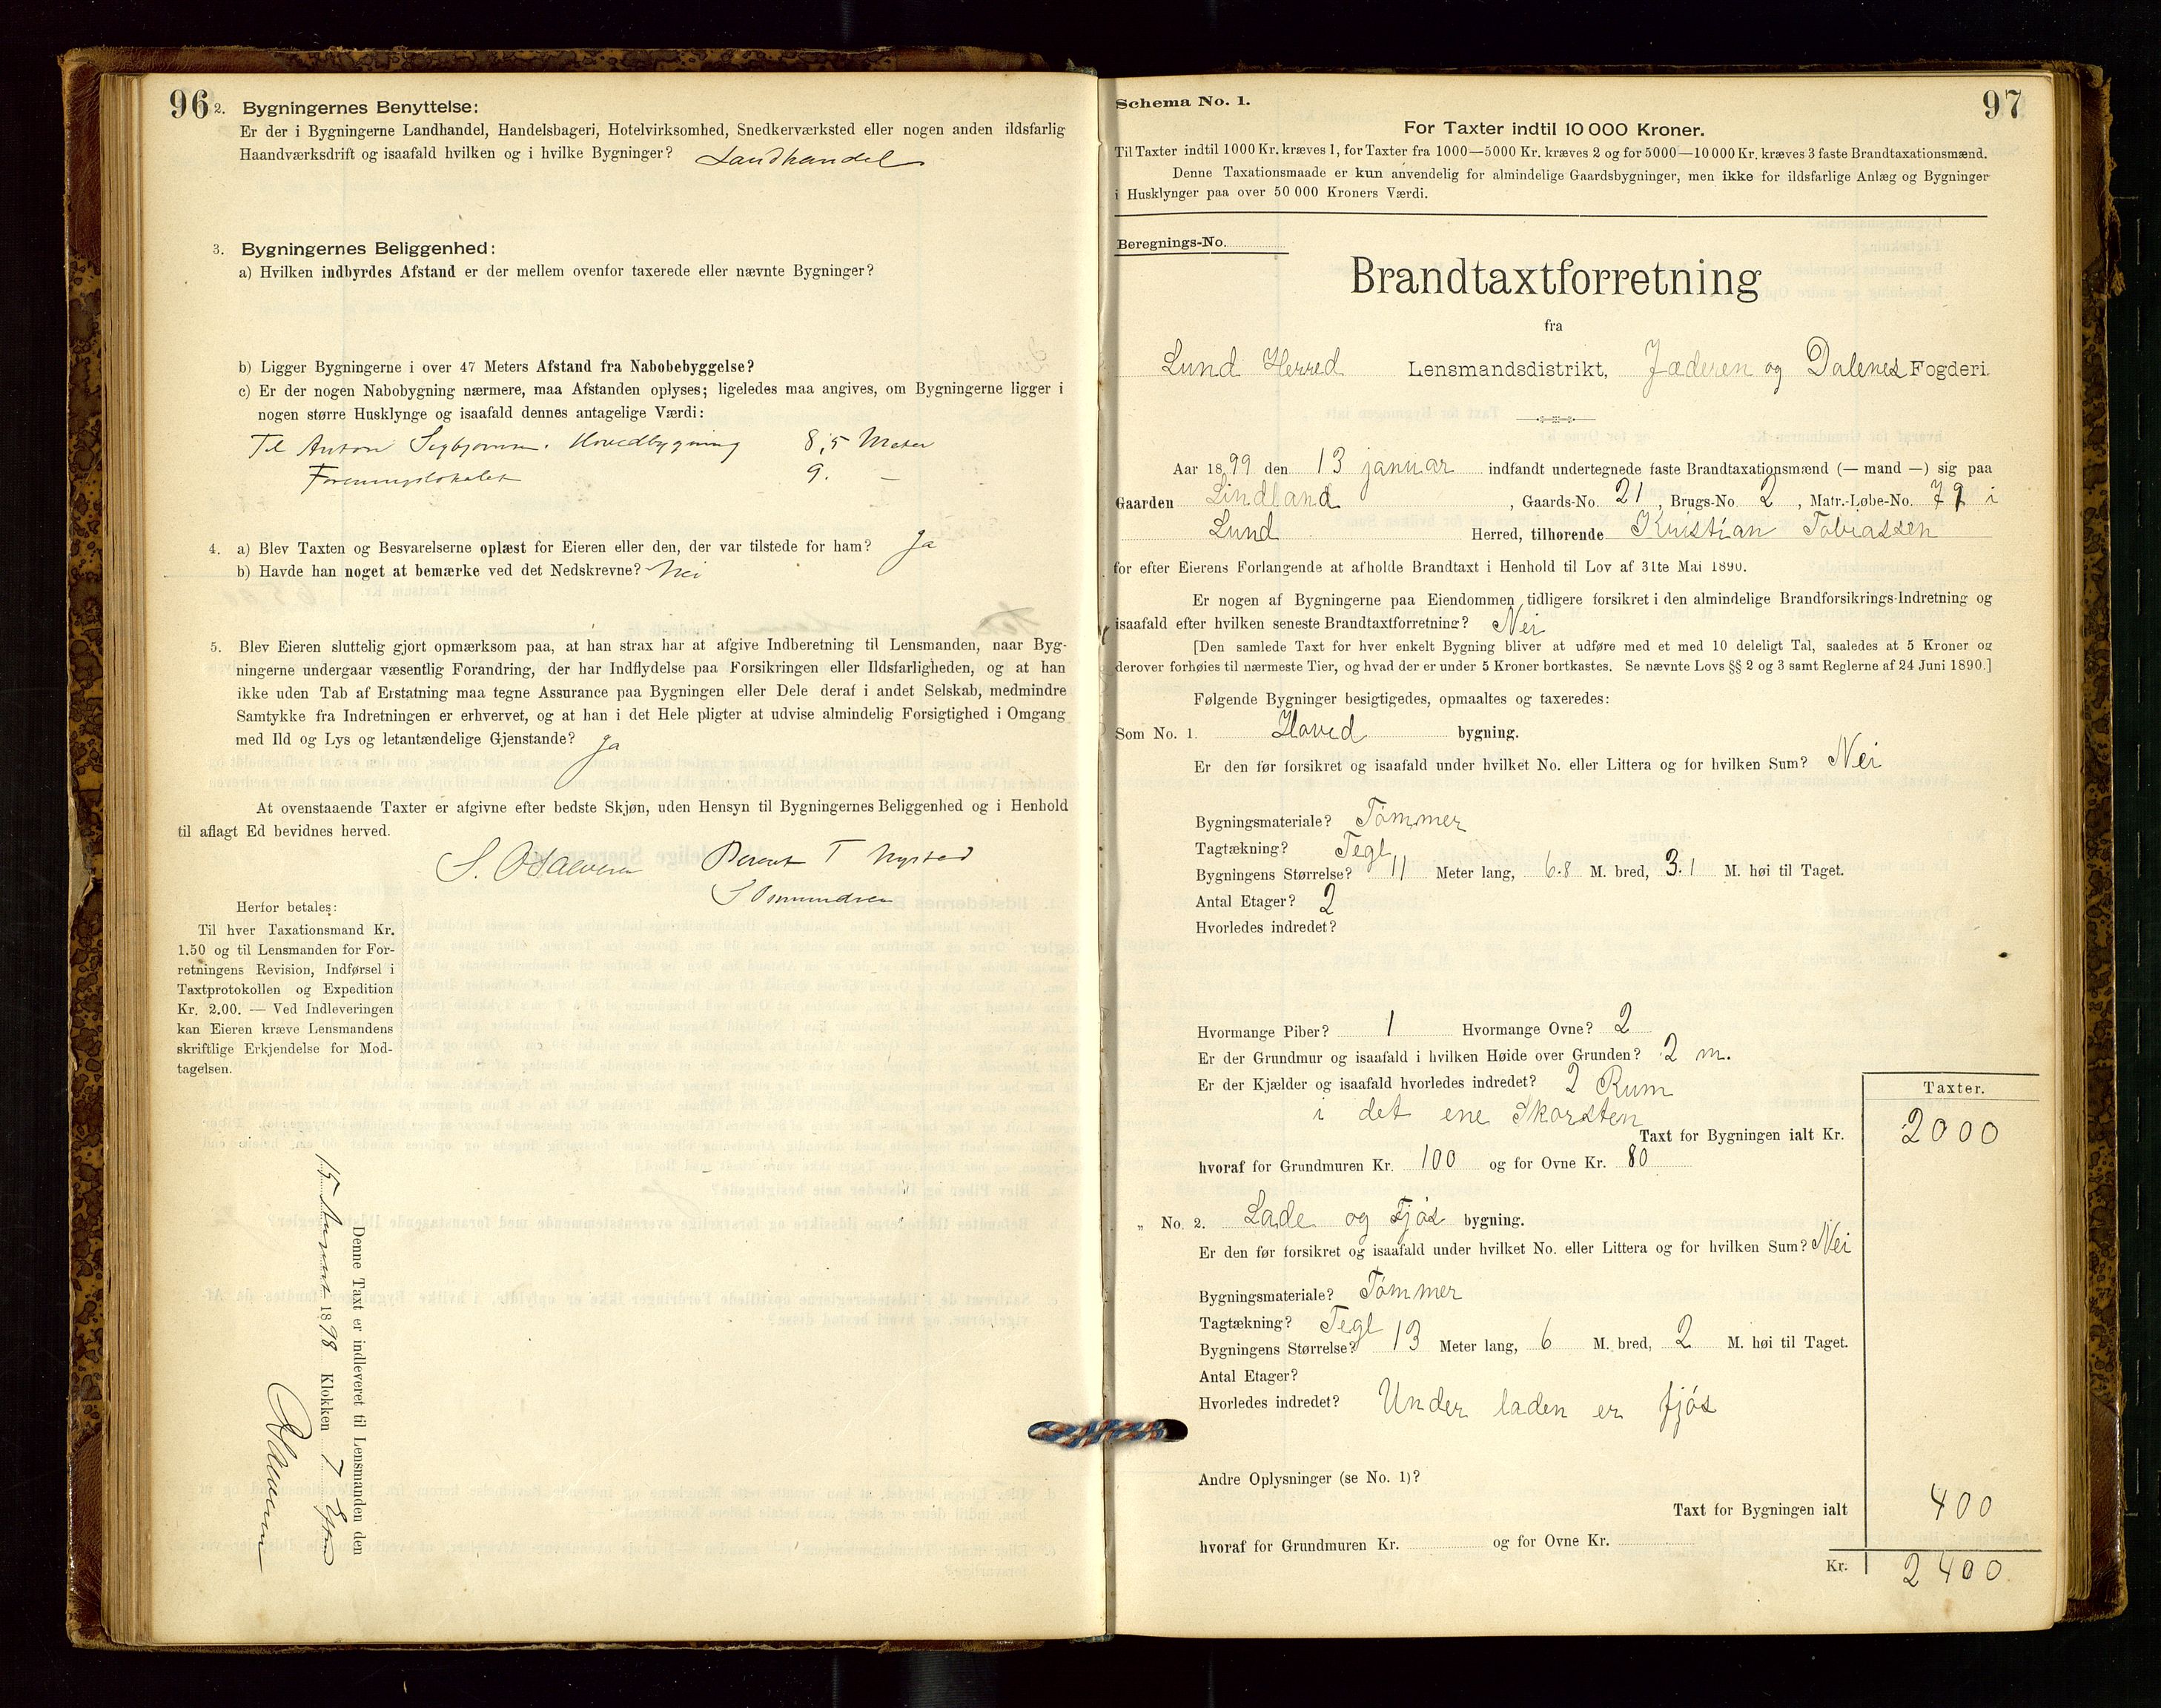 96
2. Bygningernes Benyttelse:
Er der i Bygningerne Landhandel, Handelsbageri, Hotelvirksomhed, Snedkerværksted eller nogen anden ildsfarlig
Haandværksdrift og isaafald hvilken og i hvilke Bygninger? Landhandel
3. Bygningernes Beliggenhed:
a) Hvilken indbyrdes Afstand er der mellem ovenfor taxerede eller nævnte Bygninger?
b) Ligger Bygningerne i over 47 Meters Afstand fra Nabobebyggelse?
c) Er der nogen Nabobygning nærmere, maa Afstanden oplyses; ligeledes maa angives, om Bygningerne ligger i
nogen større Husklynge og isaafald dennes antagelige Værdi:
Til Anton Hovedbygning 8,5 Meter
Foreningslokalet 9. —
4. a) Blev Taxten og Besvarelserne oplæst for Eieren eller den, der var tilstede for ham? Ja
b) Havde han noget at bemærke ved det Nedskrevne? Nei
5. Blev Eieren sluttelig gjort opmærksom paa, at han strax har at afgive Indberetning til Lensmanden, naar Byg-
ningerne undergaar væsentlig Forandring, der har Indflydelse paa Forsikringen eller Ildsfarligheden, og at han
ikke uden Tab af Erstatning maa tegne Assurance paa Bygningen eller Dele deraf i andet Selskab, medmindre
Samtykke fra Indretningen er erhvervet, og at han i det Hele pligter at udvise almindelig Forsigtighed i Omgang
med Ild og Lys og letantændelige Gjenstande? Ja
At ovenstaaende Taxter er afgivne efter bedste Skjøn, uden Hensyn til Bygningernes Beliggenhed og i Henhold
til aflagt Ed bevidnes herved.
Berent T Nystad
S Osmundsen
Herfor betales:
Til hver Taxationsmand Kr.
1.50 og til Lensmanden for For-
retningens Revision, Indførsel i
Taxtprotokollen og Expedition
Kr. 2.00. — Ved Indleveringen
kan Eieren kræve Lensmandens
skriftlige Erkjendelse for Mod-
tagelsen.
Denne Taxt er indleveret til Lensmanden den
15 August 1898 Klokken 7 Efm
97
Schema No. 1.
For Taxter indtil 10 000 Kroner.
Til Taxter indtil 1000 Kr. kræves 1, for Taxter fra 1000—5000 Kr. kræves 2 og for 5000—10 000 Kr. kræves 3 faste Brandtaxationsmænd.
Denne Taxationsmaade er kun anvendelig for almindelige Gaardsbygninger, men ikke for ildsfarlige Anlæg og Bygninger
i Husklynger paa over 50 000 Kroners Værdi.
Beregnings-No.
Brandtaxtforretning
fra
Lund Herred Lensmandsdistrikt, Jæderen og Dalenes Fogderi
Aar 1899 den 13 januar indfandt undertegnede faste Brandtaxationsmænd (— mand —) sig paa
Gaarden Lindland, Gaards-No. 21, Brugs-No. 2, Matr.-Løbe-No. 79 i
Lund Herred, tilhørende Kristian Tobiassen
for efter Eierens Forlangende at afholde Brandtaxt i Henhold til Lov af 31te Mai 1890.
Er nogen af Bygningerne paa Eiendommen tidligere forsikret i den almindelige Brandforsikrings-Indretning og
isaafald efter hvilken seneste Brandtaxtforretning? Nei
[Den samlede Taxt for hver enkelt Bygning bliver at udføre med et med 10 deleligt Tal, saaledes at 5 Kroner og
derover forhøies til nærmeste Tier, og hvad der er under 5 Kroner bortkastes. Se nævnte Lovs §§ 2 og 3 samt Reglerne af 24 Juni 1890.]
Følgende Bygninger besigtigedes, opmaaltes og taxeredes:
Som No. 1. Hoved bygning.
Er den før forsikret og isaafald under hvilket No. eller Littera og for hvilken Sum? Nei
Bygningsmateriale? Tømmer
Tagtækning? Tegl
Bygningens Størrelse? 11 Meter lang, 6.8 M. bred, 3.1 M. høi til Taget.
Antal Etager? 2
Hvorledes indredet?
Hvormange Piber? 1 Hvormange Ovne? 2
Er der Grundmur og isaafald i hvilken Høide over Grunden? 2 m.
Er der Kjælder og isaafald hvorledes indredet? 2 Rum
i det ene Skorsten
Taxter.
Taxt for Bygningen ialt Kr. 2000
hvoraf for Grundmuren Kr. 100 og for Ovne Kr. 80
„ No. 2. Lade og Fjøs bygning.
Er den før forsikret og isaafald under hvilket No. eller Littera og for hvilken Sum? Nei
Bygningsmateriale? Tømmer
Tagtækning? Tegl
Bygningens Størrelse? 13 Meter lang, 6 M. bred, 2 M. høi til Taget.
Antal Etager?
Hvorledes indredet? Under laden er fjøs
Andre Oplysninger (se No. 1)?
Taxt for Bygningen ialt 400
hvoraf for Grundmuren Kr. og for Ovne Kr.
Kr. 2400